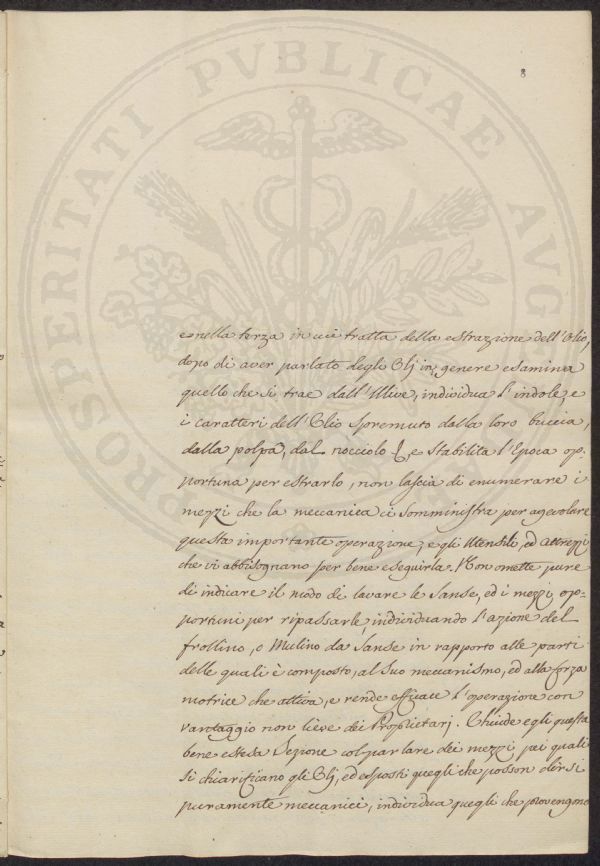 PROSPERITATI PVBLICAE AVGENDAE
8
e nella terza in cui tratta della estrazione dell'Olio,
dopo di aver parlato degli Olj in genere esamina
quello che si trae dall'Ulive, individua l'indole, e
i caratteri dell'Olio spremuto dalla loro buccia,
dalla polpa, dal nocciolo &, e stabilita l'Epoca op=
portuna per estrarlo, non lascia di enumerare i
mezzi che la meccanica ci somministra per agevolare
questa importante operazione, e gli Utensili, ed Attrezzi
che vi abbisognano per bene eseguirla. Non omette pure
di indicare il modo di lavare le Sanse, ed i mezzi op=
portuni per ripassarle, individuando l'azione del
frollino, o Mulino da Sanse in rapporto alle parti
delle quali è composto, al suo meccanismo, ed alla forza
motrice che attiva, e rende efficace l'operazione con
vantaggio non lieve dei Proprietarj. Chiude egli questa
bene estesa Sezione col parlare dei mezzi pei quali
si chiarificano gli Olj, ed esposti quegli che posson dirsi
puramente meccanici, individua quegli che provengono